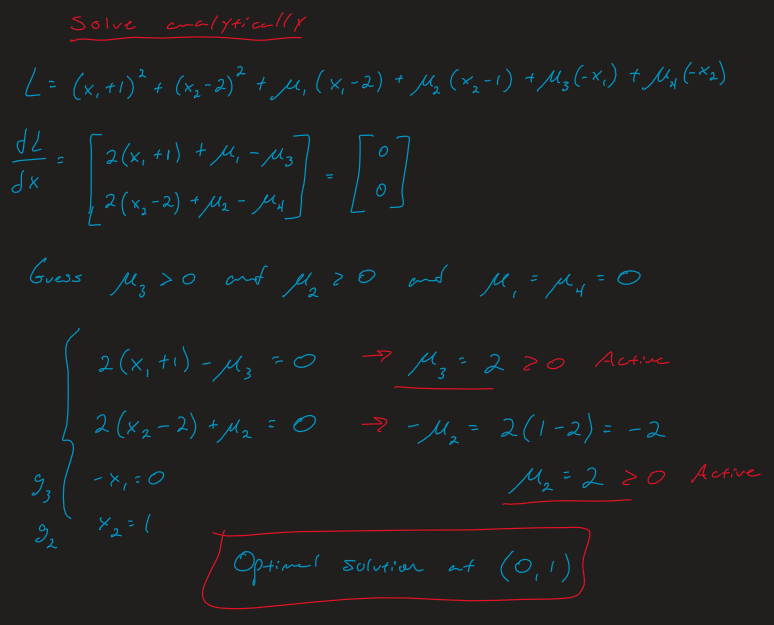 Solve analytically
L = (x₁+1)² + (x₂-2)² + μ₁(x₁-2) + μ₂(x₂-1) + μ₃(-x₁) + μ₄(-x₂)
dL/dx = [2(x₁+1) + μ₁ - μ₃
2(x₂-2) + μ₂ - μ₄] = [0
0]
Guess μ₃ > 0 and μ₂ ≥ 0 and μ₁ = μ₄ = 0
2(x₁+1) - μ₃ = 0 → μ₃ = 2 ≥ 0 Active
2(x₂-2) + μ₂ = 0 → -μ₂ = 2(1-2) = -2
g₃ -x₁ = 0 μ₂ = 2 ≥ 0 Active
g₂ x₂ = 1
Optimal solution at (0,1)